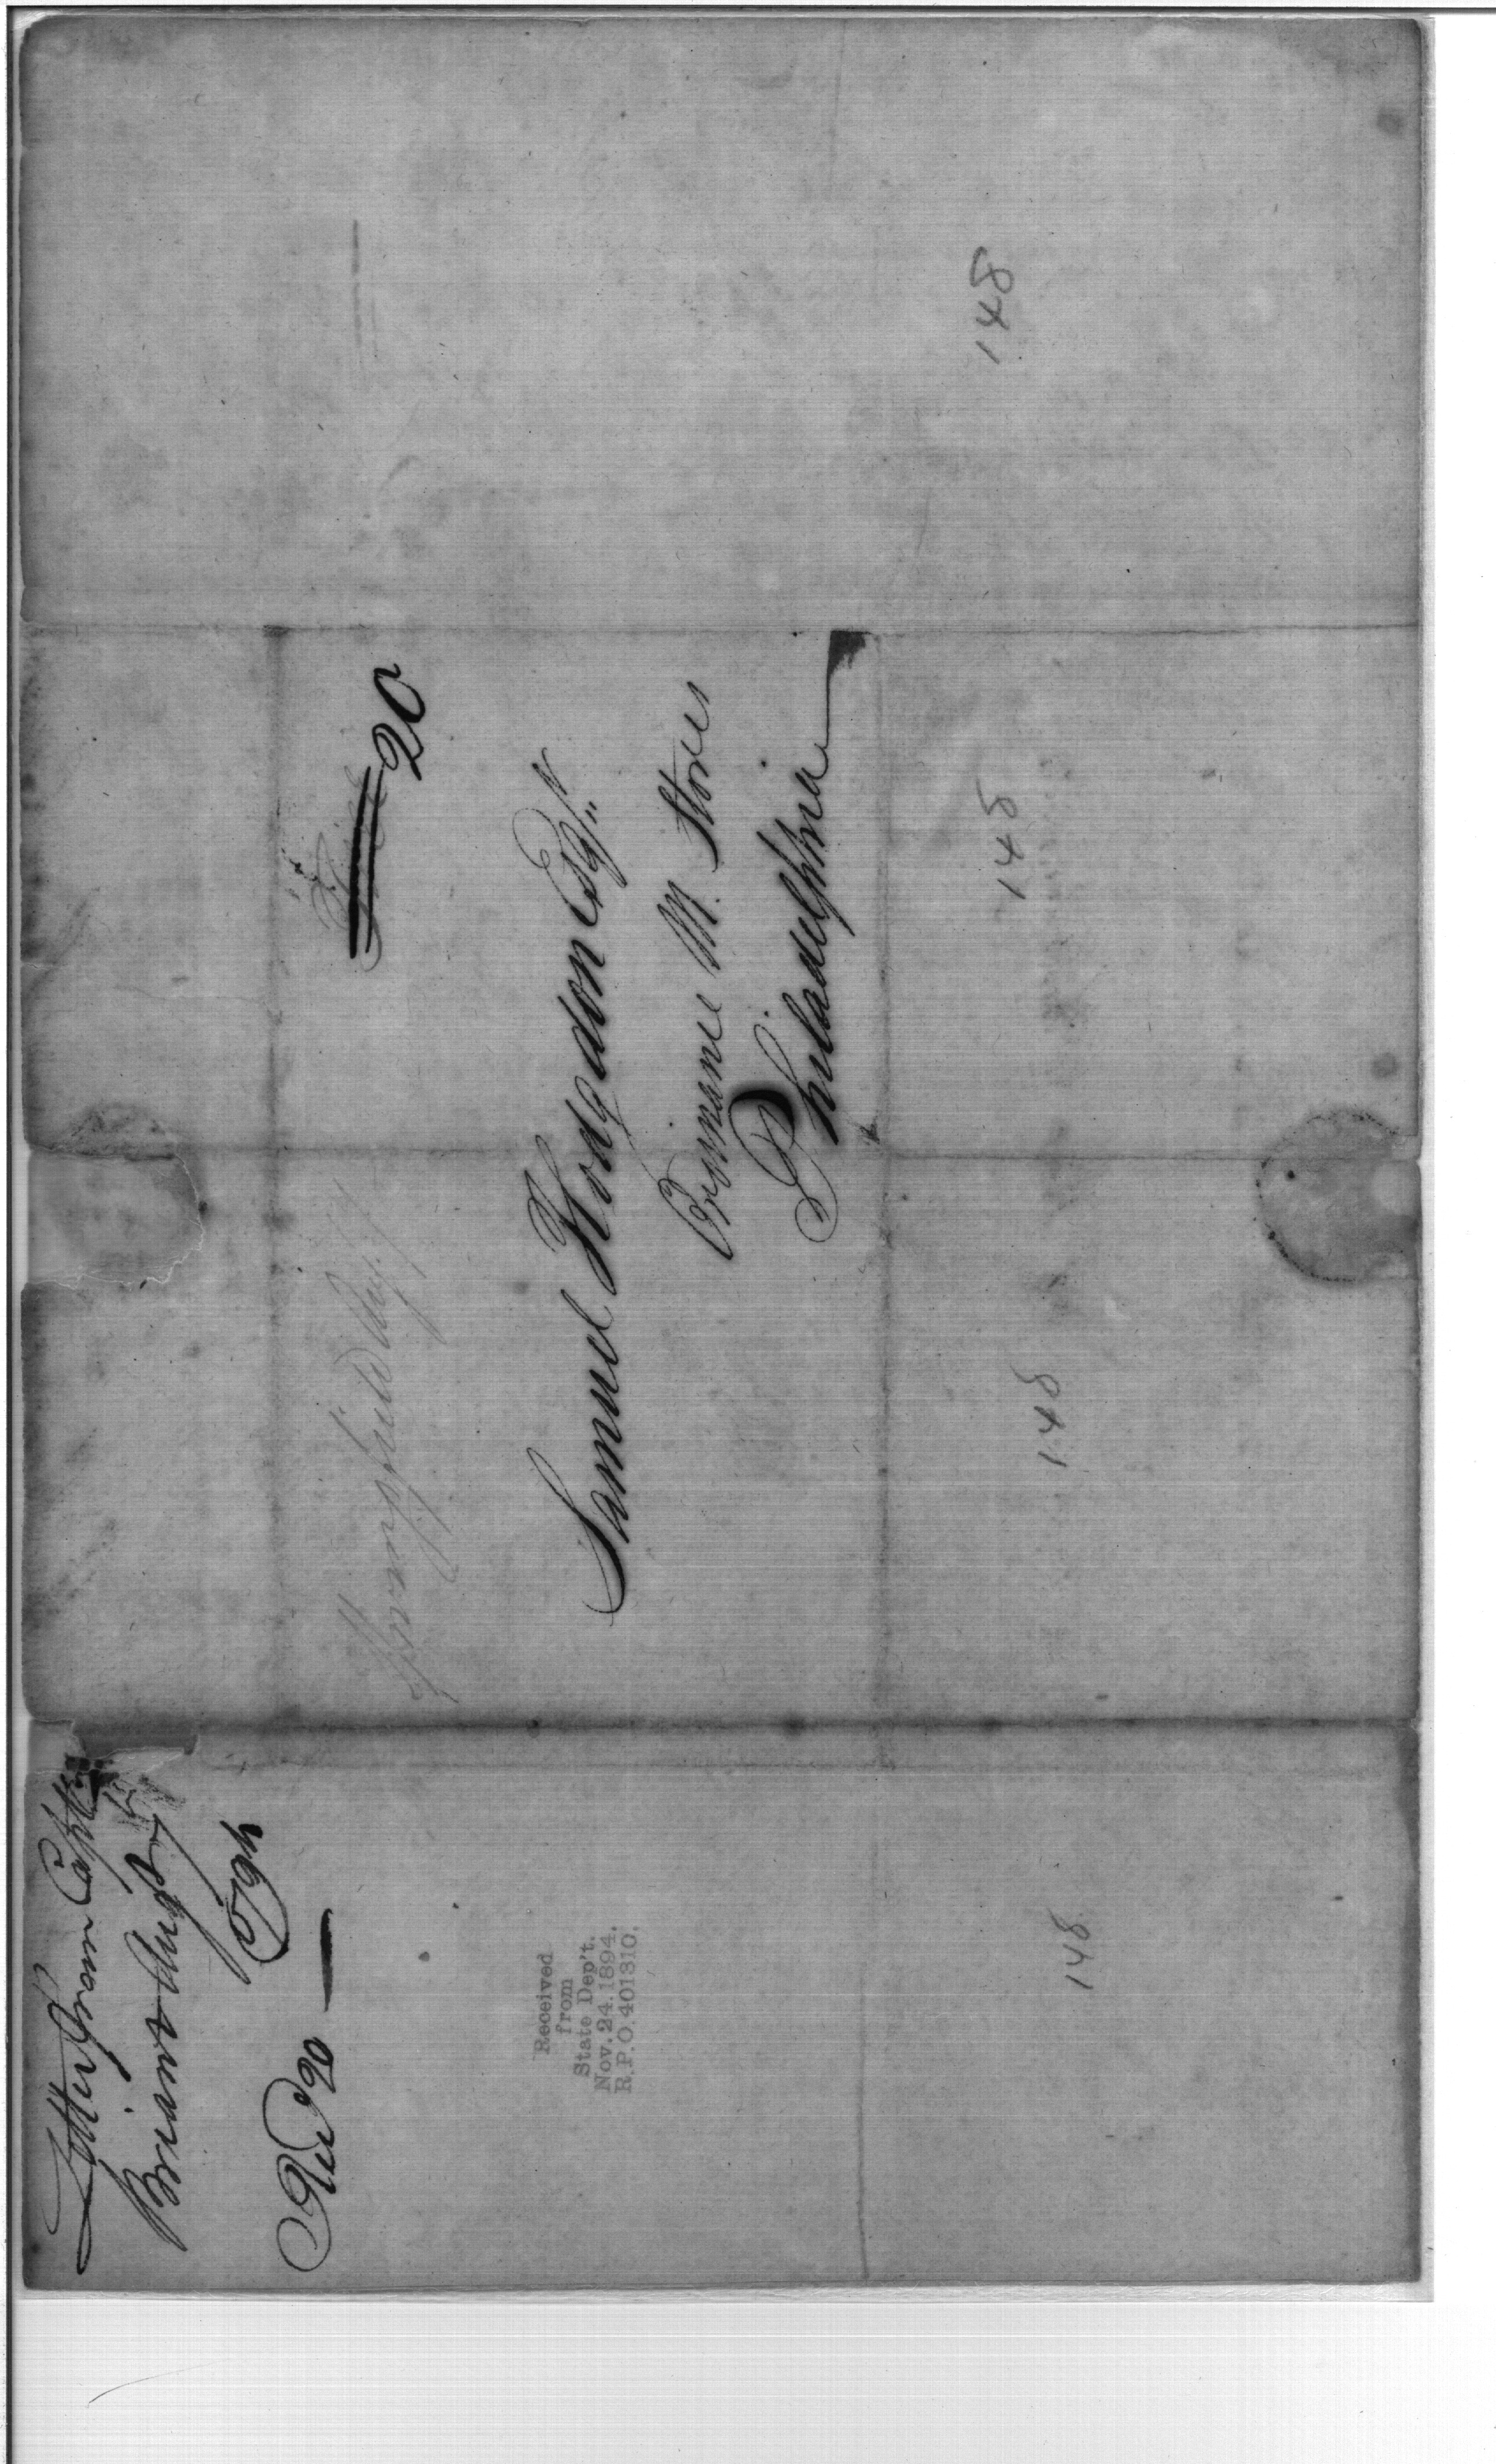 Letter from Capt
Briant Augt
1796
Recd 90
Received
from
State Dep't.
Nov. 24. 1894.
R.P.O. 401310.
148
Springfield Aug.
Free
20
Samuel Hodgdon Esqr.
Ordnance M. Stores
Philadelphia
148
148
148